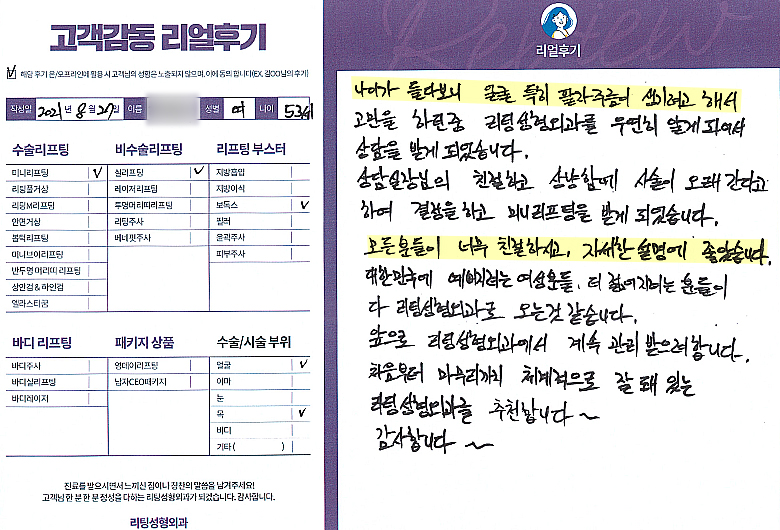 고객감동 리얼후기
해당 후기 온/오프라인에 활용 시 고객님의 성함은 노출되지 않으며, 이에 동의 합니다(EX, 김OO님의 후기)
작성일 2021년 8월 27일 이름 성별 여 나이 53세
수술리프팅
미니리프팅 ✓
리팅풀거상
리팅M리프팅
안면거상
볼턱리프팅
미니브이리프팅
반투명 머리띠 리프팅
상안검 & 하안검
엘라스티꿈
비수술리프팅
실리프팅 ✓
레이저리프팅
투명머리띠리프팅
리팅주사
베네핏주사
리프팅 부스터
지방흡입
지방이식
보톡스 ✓
필러
윤곽주사
피부주사
바디 리프팅
바디주사
바디실리프팅
바디레이저
패키지 상품
영데이리프팅
남자CEO패키지
수술/시술 부위
얼굴 ✓
이마
눈
목 ✓
바디
기타 ( )
진료를 받으시면서 느끼신 점이나 칭찬의 말씀을 남겨주세요!
고객님 한 분 한 분 정성을 다하는 리팅성형외과가 되겠습니다. 감사합니다.
리팅성형외과
Review
리얼후기
나이가 들다보니 얼굴 특히 팔자주름이 신경쓰이고 해서
고민을 하던중 리팅성형외과를 우연히 알게 되어서
상담을 받게 되었습니다.
상담실장님의 친절하고 상냥함에 시술이 오래 간다고
하여 결정을 하고 미니리프팅을 받게 되었습니다.
모든분들이 너무 친절하시고, 자세한 설명에 좋았습니다.
대한민국에 예뻐지려는 여성분들, 더 젊어지려는 분들이
다 리팅성형외과로 오는것 같습니다.
앞으로 리팅성형외과에서 계속 관리 받으려 합니다.
처음부터 마무리까지 체계적으로 잘 돼 있는
리팅성형외과를 추천합니다~
감사합니다~